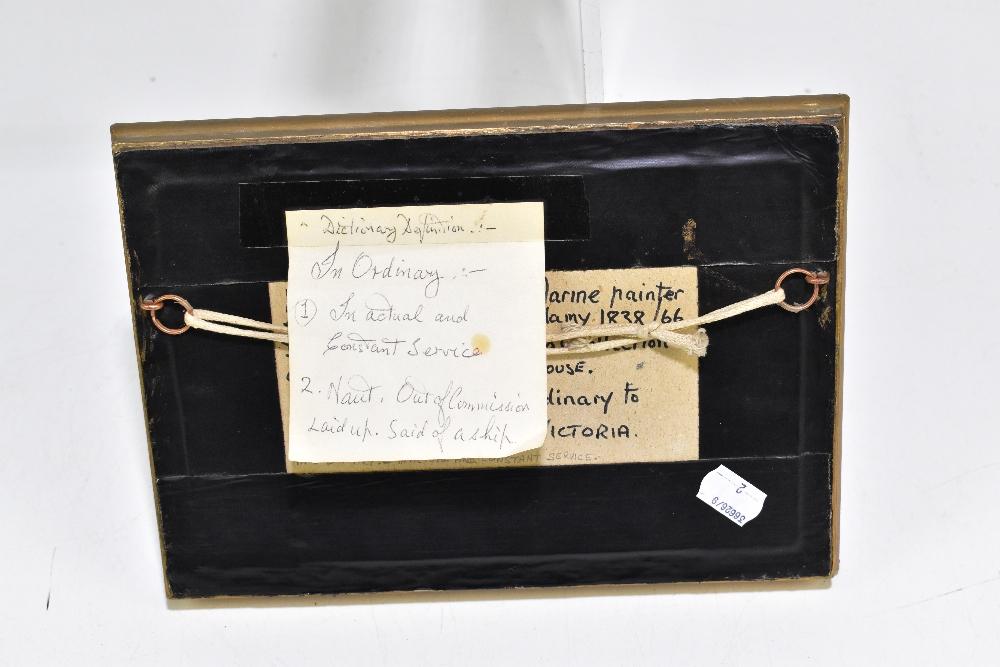 Dictionary Definition :-
In Ordinary :-
1 In actual and
Constant Service
2. Naut. Out of Commission
Laid up. Said of a ship
arine painter
1838/66
OUSE.
dinary to
VICTORIA.
AND CONSTANT SERVICE.
36626/9
2